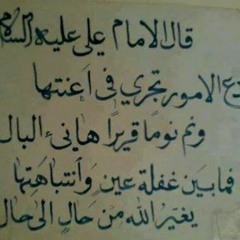 قال الامام علي عليه السلام
دع الامور تجري في اعنتها
ونم نوما قريرا هانىء البال
فمابين غفلة عين وانتباهتها
يغير الله من حال الى حال